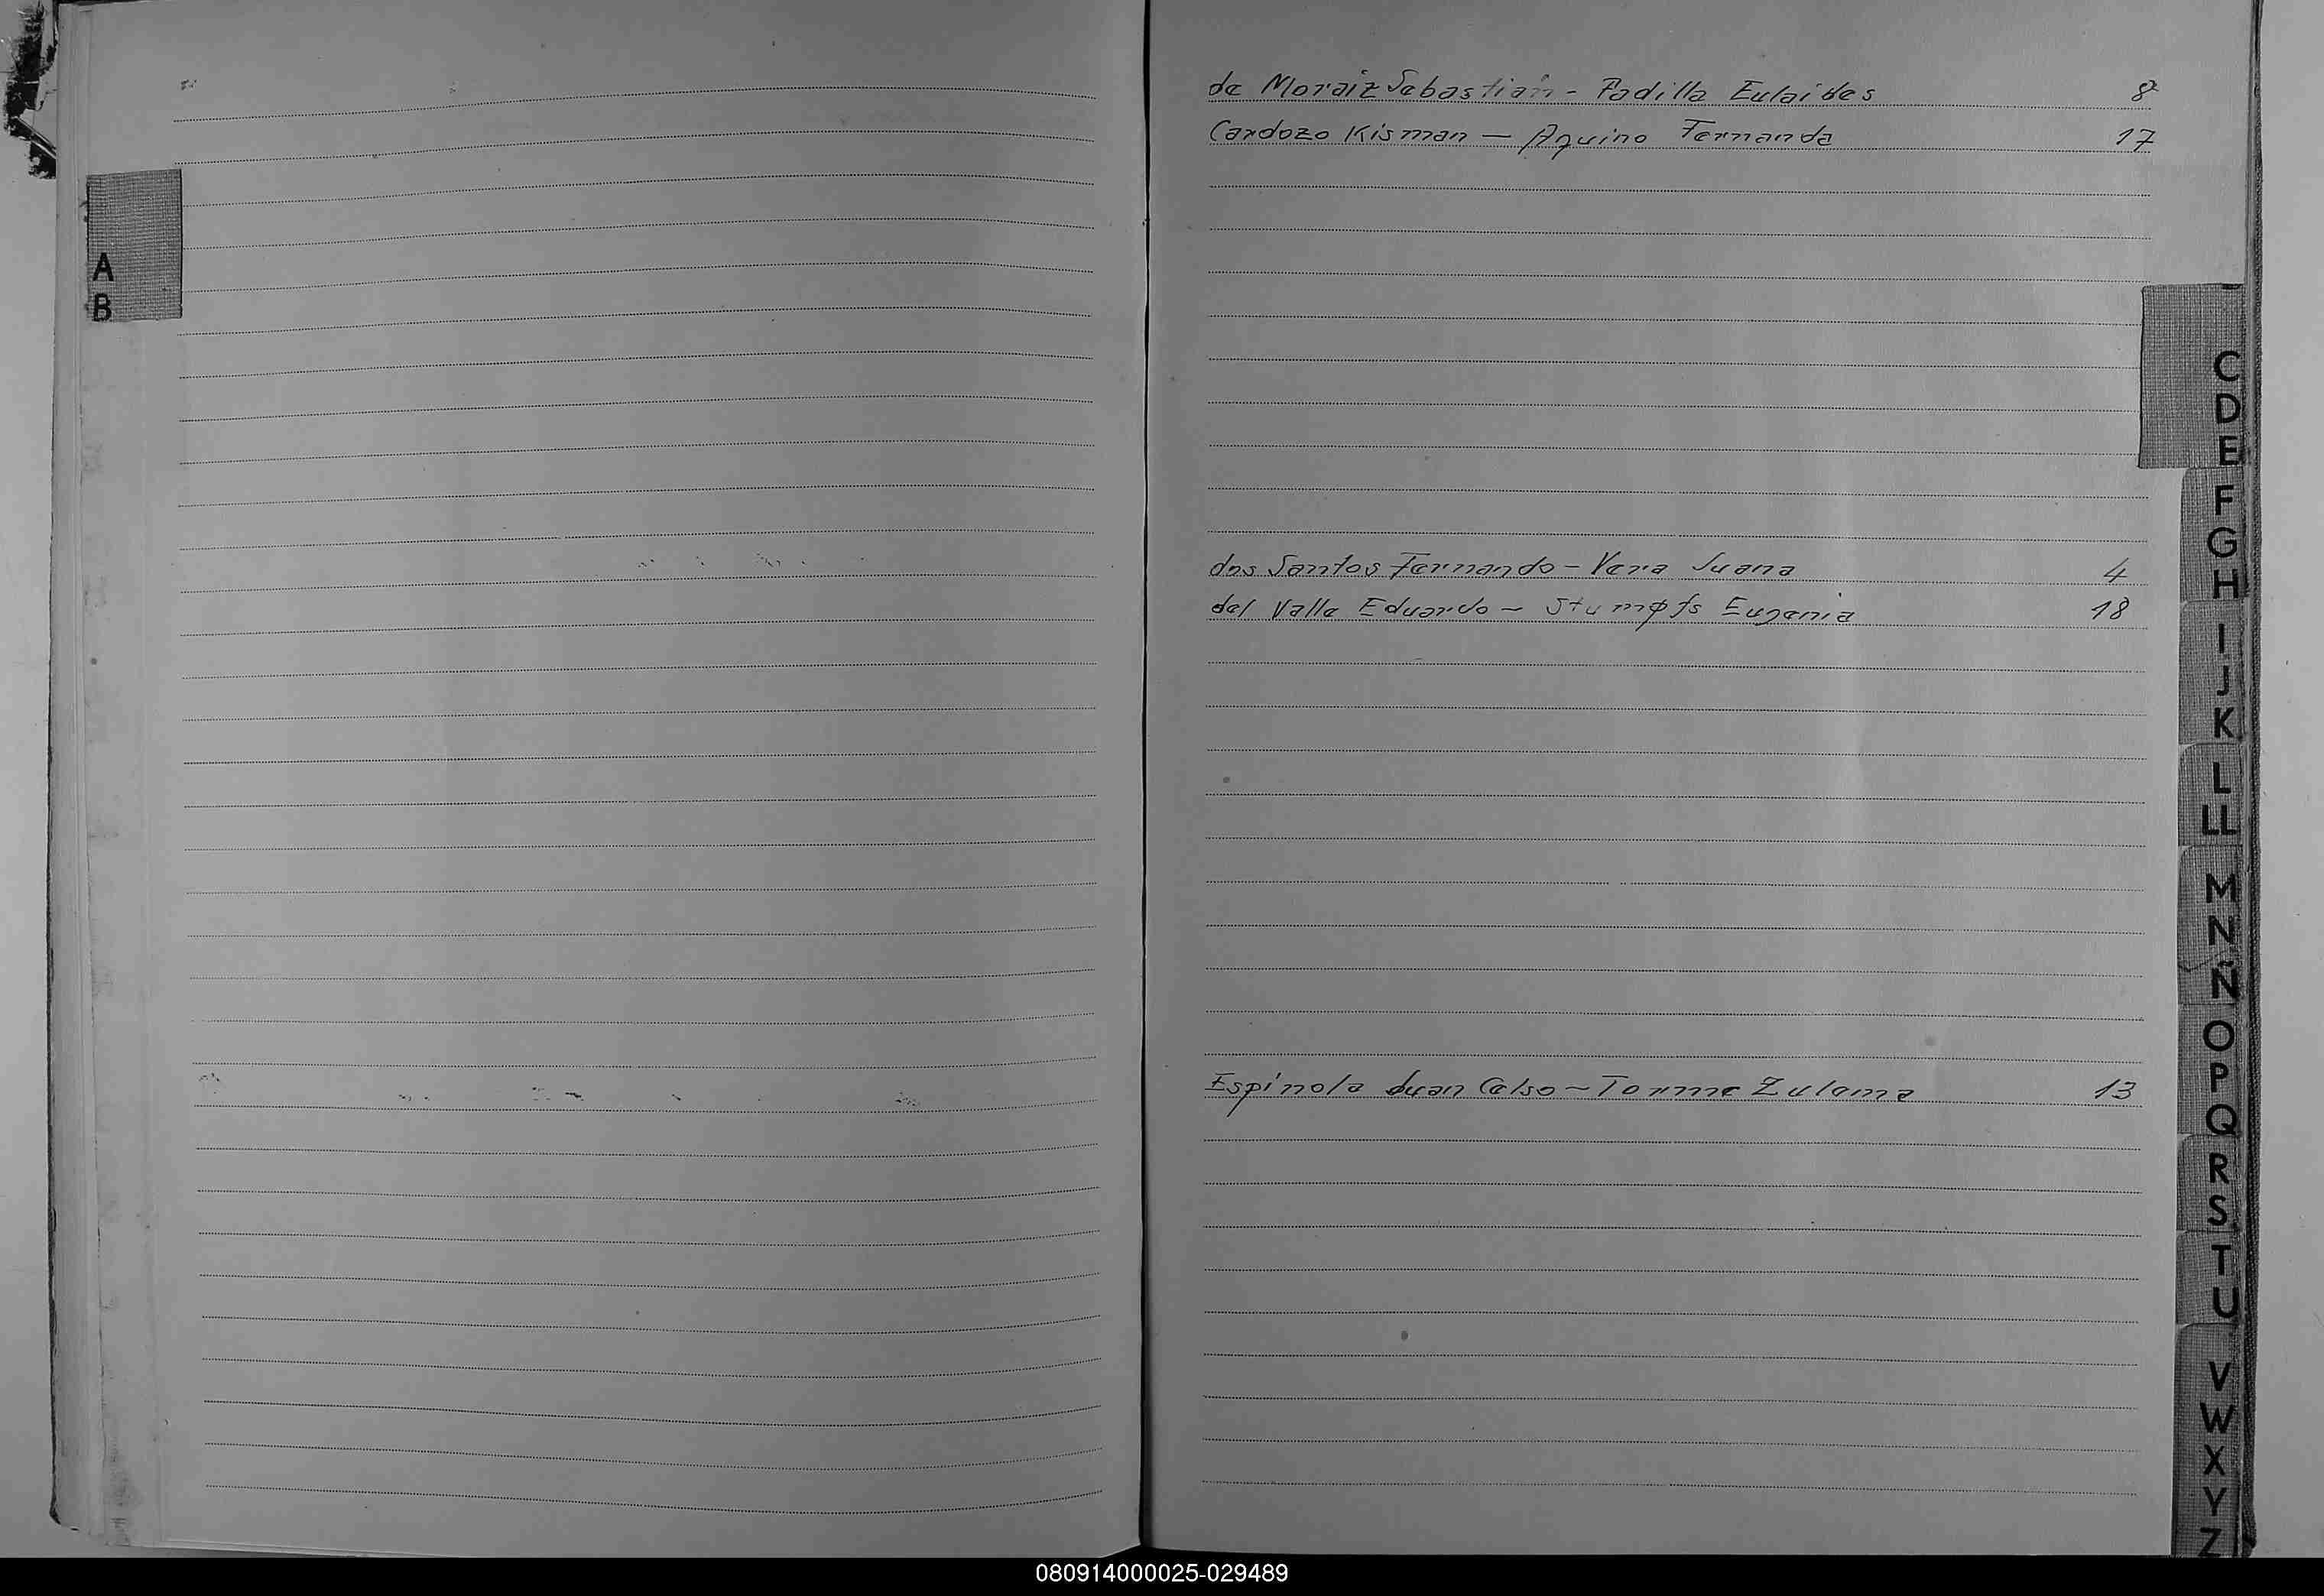 A
B
de Moraiz Sebastián - Padilla Eulaides 8
Cardozo Kisman — Aquino Fernanda 17
dos Santos Fernando - Vera Juana 4
del Valle Eduardo - Stumpfs Eugenia 18
Espínola Juan Celso - Torme Zulema 13
C
D
E
F
G
H
I
J
K
L
LL
M
N
Ñ
O
P
Q
R
S
T
U
V
W
X
Y
Z
080914000025-029489